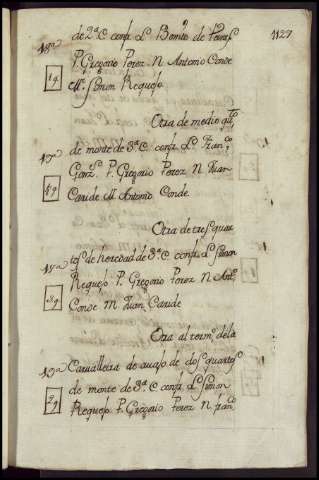 1127
de 2ª C confr. L. Benito de Perez
P. Gregorio Perez N. Antonio Conde
M. Simon Requejo
Otra de medio qto
de monte de 3ª C confr. L. Franco
Garz. P. Gregorio Perez N. Juan
Caride M. Antonio Conde
Otra de tres quar
tos de heredad de 3ª C confr. L. Simon
Requejo P. Gregorio Perez N. Anto
Conde M. Juan Caride
Otra al termo de la
Carvalleira de abajo de dos quartos
de monte de 3ª C confr. L. Simon
Requejo P. Gregorio Perez N. Franco